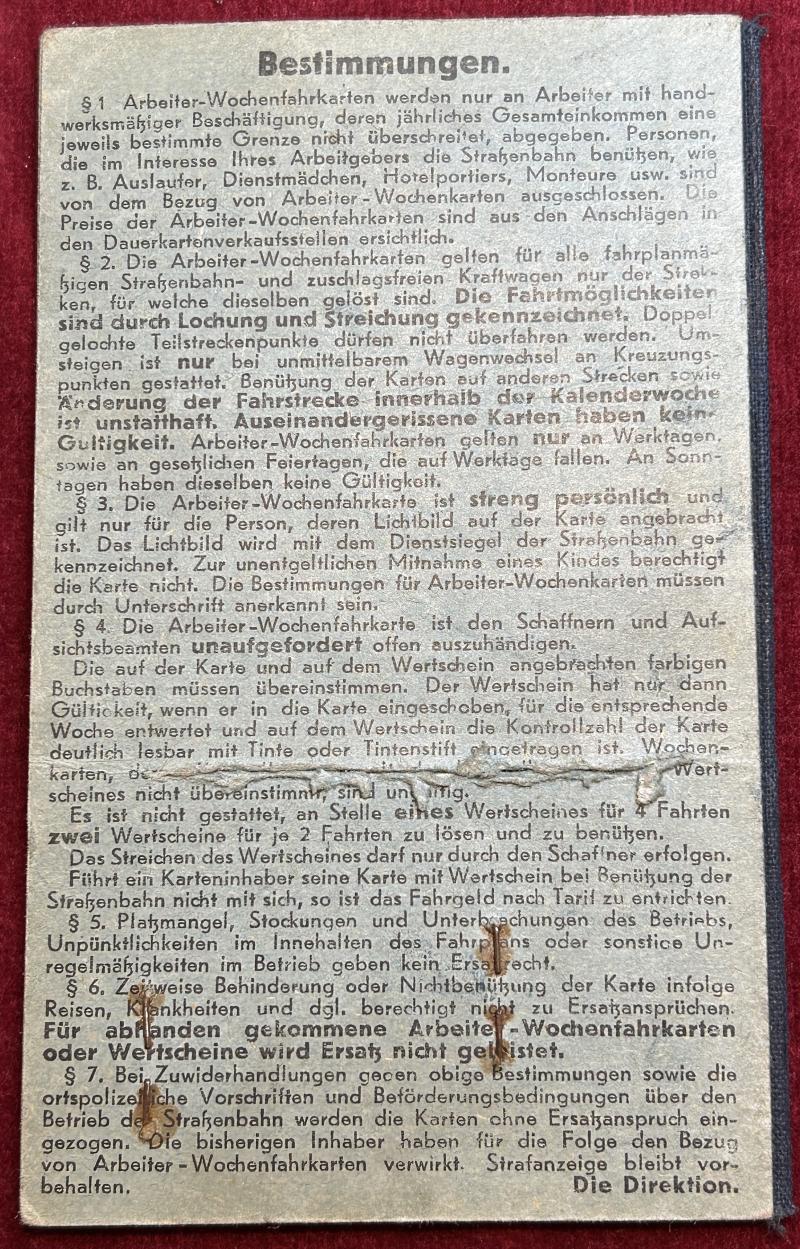 Bestimmungen.
§ 1 Arbeiter-Wochenfahrkarten werden nur an Arbeiter mit hand-
werksmäßiger Beschäftigung, deren jährliches Gesamteinkommen eine
jeweils bestimmte Grenze nicht überschreitet, abgegeben. Personen,
die im Interesse Ihres Arbeitgebers die Straßenbahn benützen, wie
z. B. Auslaufer, Dienstmädchen, Hotelportiers, Monteure usw. sind
von dem Bezug von Arbeiter-Wochenkarten ausgeschlossen. Die
Preise der Arbeiter-Wochenfahrkarten sind aus den Anschlägen in
den Dauerkartenverkaufsstellen ersichtlich.
§ 2. Die Arbeiter-Wochenfahrkarten gelten für alle fahrplanmä-
ßigen Straßenbahn- und zuschlagsfreien Kraftwagen nur der Strek-
ken, für welche dieselben gelöst sind. Die Fahrtmöglichkeiten
sind durch Lochung und Streichung gekennzeichnet. Doppel
gelochte Teilstreckenpunkte dürfen nicht überfahren werden. Um-
steigen ist nur bei unmittelbarem Wagenwechsel an Kreuzungs-
punkten gestattet. Benützung der Karten auf anderen Strecken sowie
Änderung der Fahrstrecke innerhalb der Kalenderwoche
ist unstatthaft. Auseinandergerissene Karten haben kein-
Gültigkeit. Arbeiter-Wochenfahrkarten gelten nur an Werktagen,
sowie an gesetzlichen Feiertagen, die auf Werktage fallen. An Sonn-
tagen haben dieselben keine Gültigkeit.
§ 3. Die Arbeiter-Wochenfahrkarte ist streng persönlich und
gilt nur für die Person, deren Lichtbild auf der Karte angebracht
ist. Das Lichtbild wird mit dem Dienstsiegel der Straßenbahn ge-
kennzeichnet. Zur unentgeltlichen Mitnahme eines Kindes berechtigt
die Karte nicht. Die Bestimmungen für Arbeiter-Wochenkarten müssen
durch Unterschrift anerkannt sein.
§ 4. Die Arbeiter-Wochenfahrkarte ist den Schaffnern und Auf-
sichtsbeamten unaufgefordert offen auszuhändigen.
Die auf der Karte und auf dem Wertschein angebrachten farbigen
Buchstaben müssen übereinstimmen. Der Wertschein hat nur dann
Gültigkeit, wenn er in die Karte eingeschoben, für die entsprechende
Woche entwertet und auf dem Wertschein die Kontrollzahl der Karte
deutlich lesbar mit Tinte oder Tintenstift eingetragen ist. Wochen-
karten, Wert-
scheines nicht übereinstimmt, sind ungültig.
Es ist nicht gestattet, an Stelle eines Wertscheines für 4 Fahrten
zwei Wertscheine für je 2 Fahrten zu lösen und zu benützen.
Das Streichen des Wertscheines darf nur durch den Schaffner erfolgen.
Führt ein Karteninhaber seine Karte mit Wertschein bei Benützung der
Straßenbahn nicht mit sich, so ist das Fahrgeld nach Tarif zu entrichten.
§ 5. Platzmangel, Stockungen und Unterbrechungen des Betriebs,
Unpünktlichkeiten im Innehalten des Fahrplans oder sonstige Un-
regelmäßigkeiten im Betrieb geben kein Ersatzrecht.
§ 6. Zeitweise Behinderung oder Nichtbenützung der Karte infolge
Reisen, Krankheiten und dgl. berechtigt nicht zu Ersatzansprüchen.
Für abhanden gekommene Arbeiter-Wochenfahrkarten
oder Wertscheine wird Ersatz nicht geleistet.
§ 7. Bei Zuwiderhandlungen gegen obige Bestimmungen sowie die
ortspolizeiliche Vorschriften und Beförderungsbedingungen über den
Betrieb der Straßenbahn werden die Karten ohne Ersatzanspruch ein-
gezogen. Die bisherigen Inhaber haben für die Folge den Bezug
von Arbeiter-Wochenfahrkarten verwirkt. Strafanzeige bleibt vor-
behalten. Die Direktion.